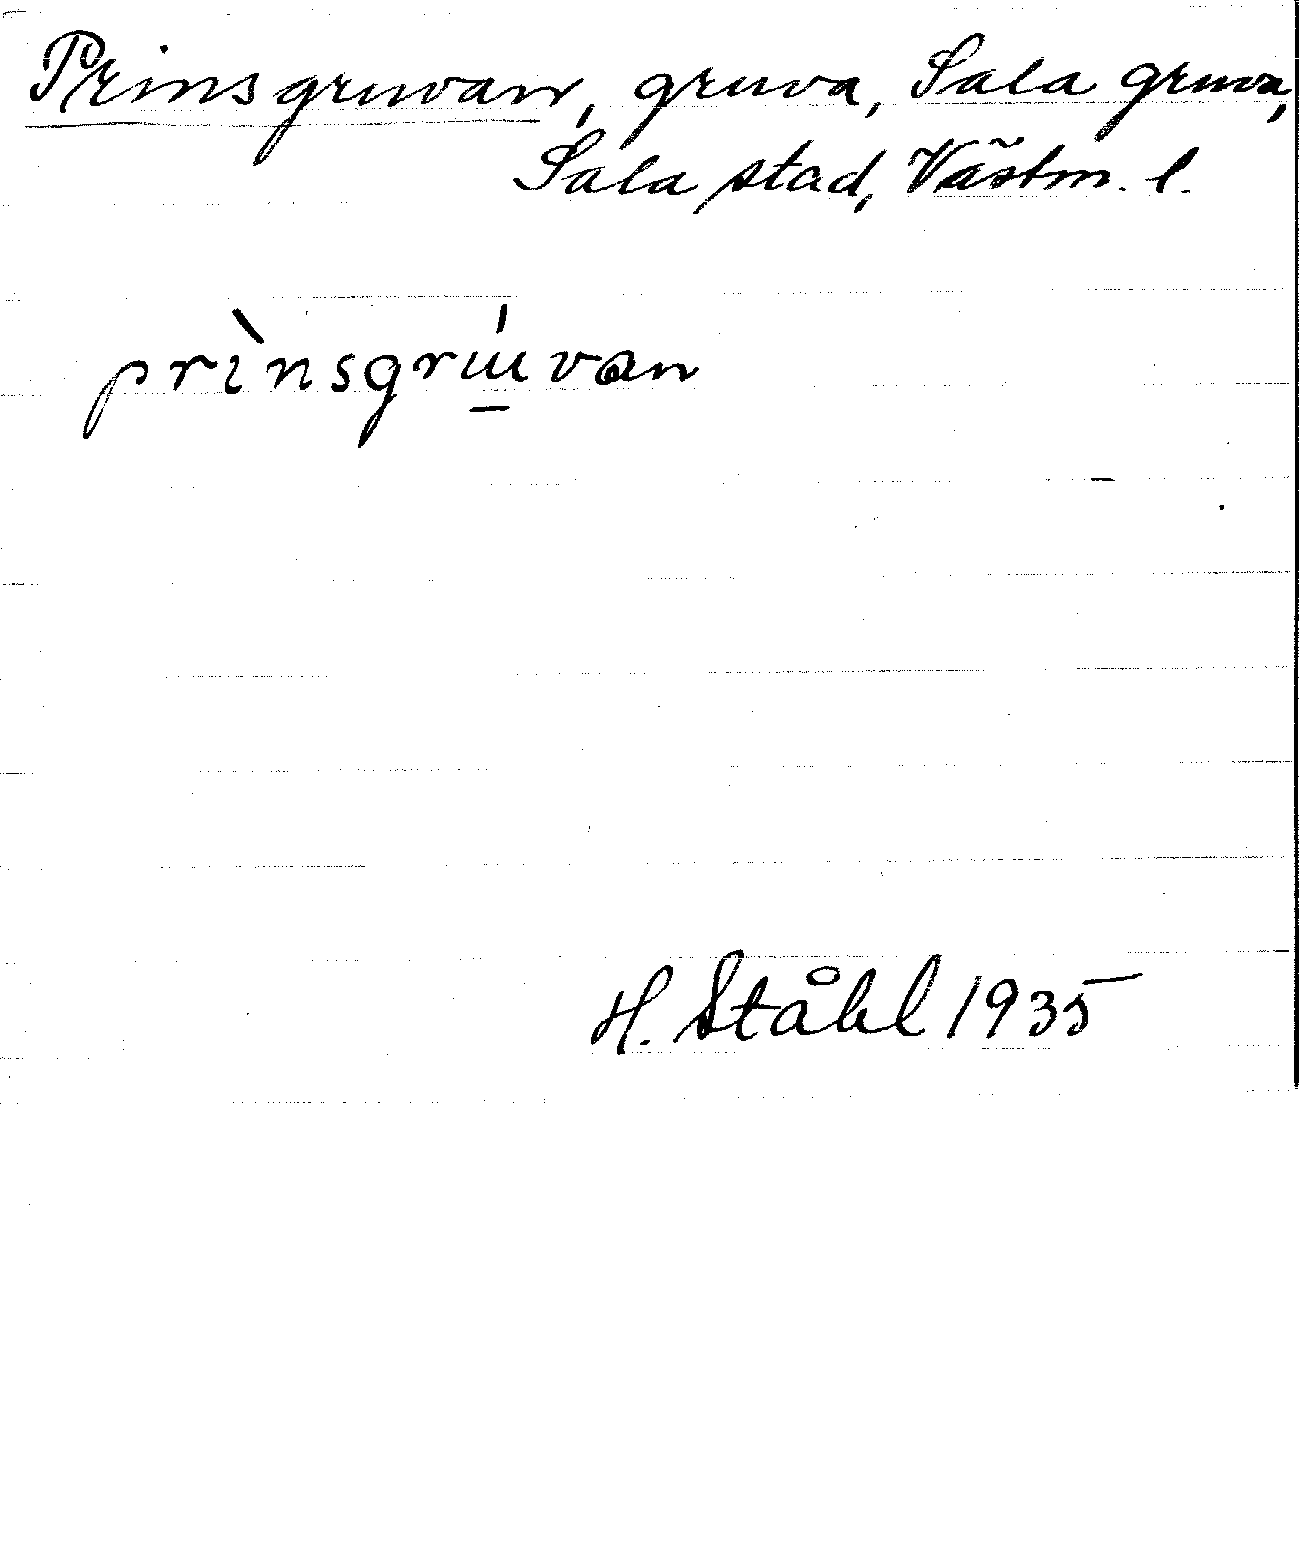 Prinsgruvan, gruva, Sala gruva,
Sala stad, Västm. l.
prìnsgrú̱van
H. Ståhl 1935